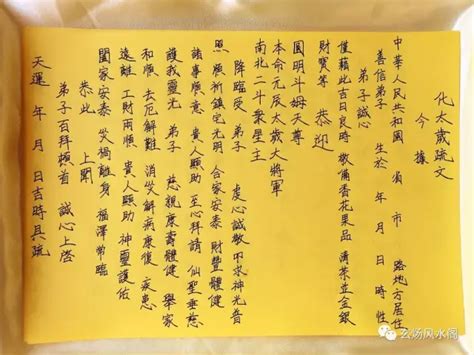 化太歲疏文
今據
中華人民共和國 省 市 路地方居住
善信弟子 生於 年 月 日 時 性
弟子誠心
僅藉此吉日良時 敬備香花果品 清茶並金銀
財寶等 恭迎
圓明斗姆天尊
本命元辰太歲大將軍
南北二斗眾星王
降臨受 弟子 虔心誠敬 叩求神光普
照 順祈鎮宅光明 合家安泰 財豐體健
諸事順意 貴人顯助 至心拜請 仙聖垂慈
護我靈光 弟子 慈親康壽體健 舉家
和順 去厄解難 消災解病康復 疾患
遠離 工財兩順 貴人顯助 神靈護佑
闔家安泰 災禍離身 福澤常臨
恭此 上聞
弟子百拜頓首 誠心上啓
天運 年 月 日吉時具疏
玄炀风水阁